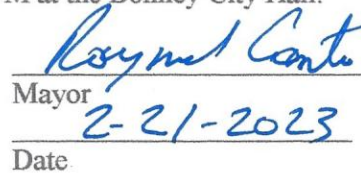 M at the Bonney City Hall.
Raymond Cantu
Mayor
2-21-2023
Date